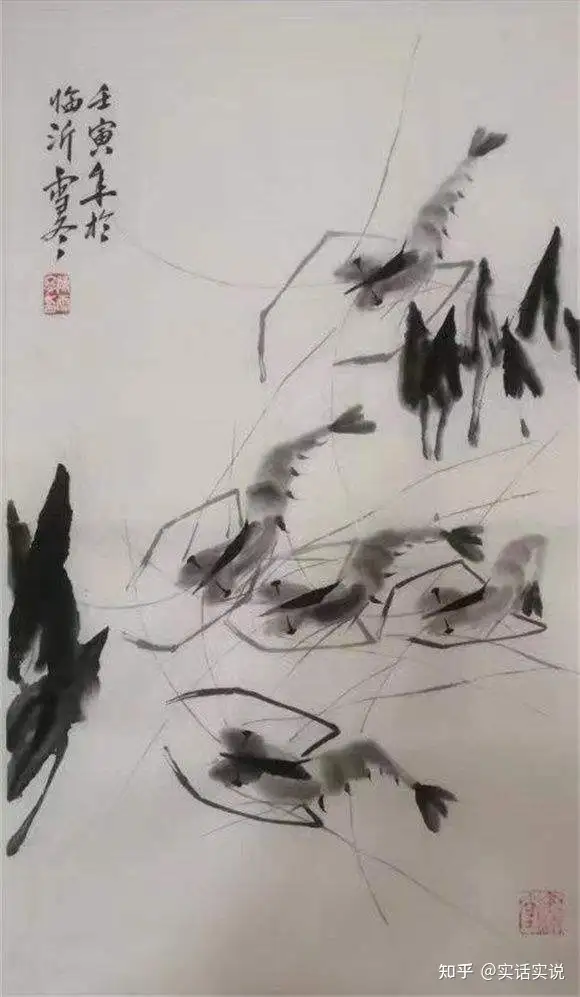 壬寅年於
临沂雪冬
知乎 @实话实说